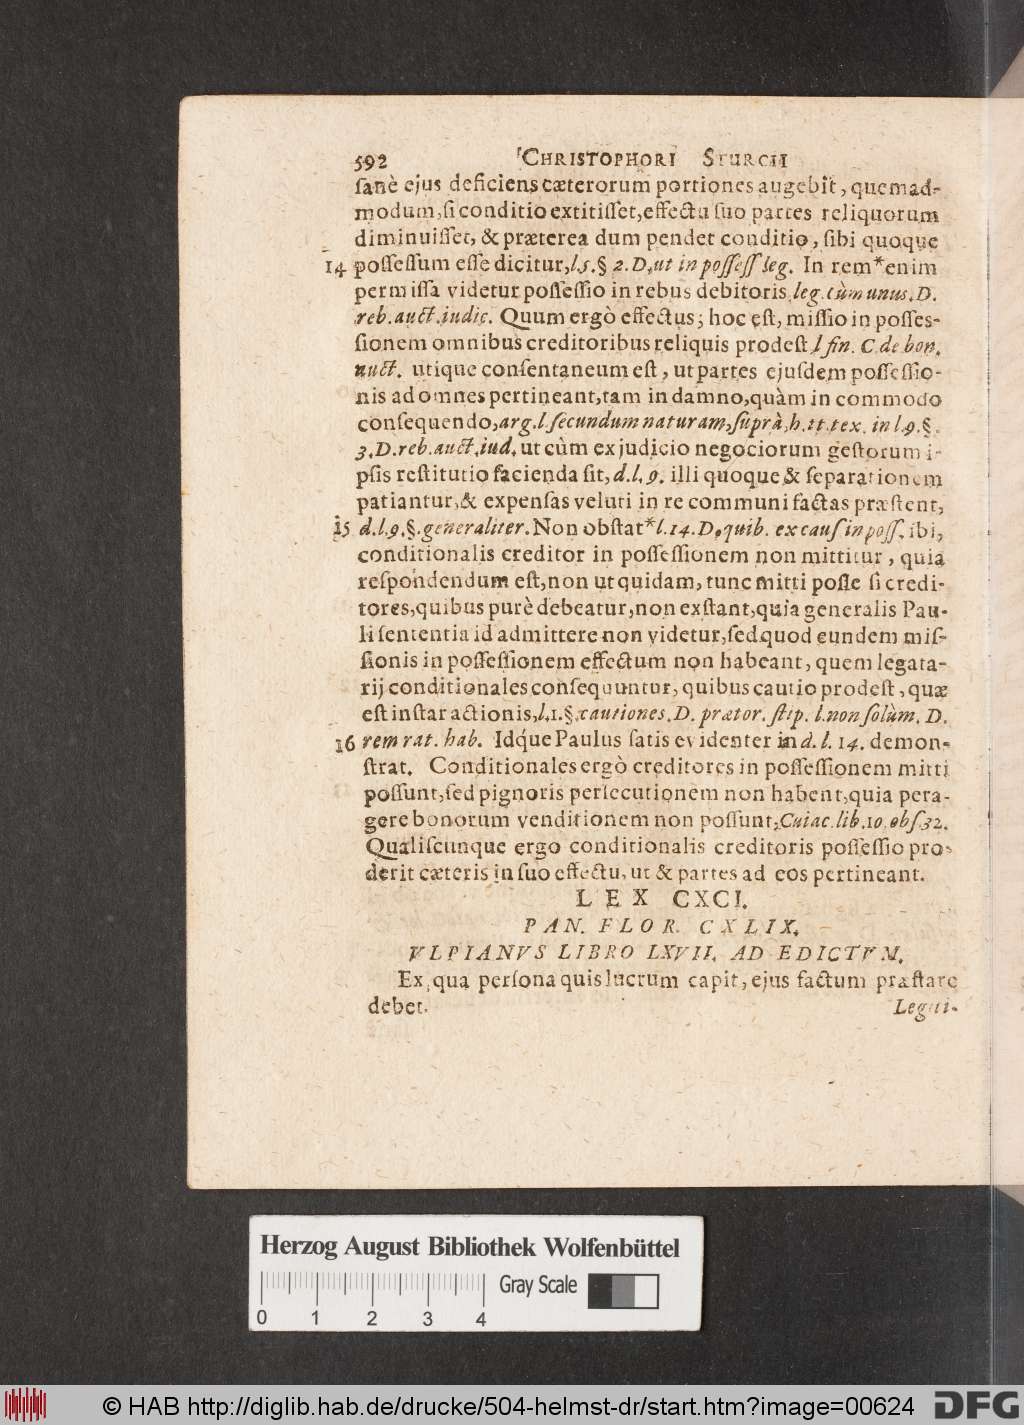 592 CHRISTOPHORI STURCII
ſanè ejus deficiens cæterorum portiones augebit, quemad-
modum, ſi conditio extitiſſet, effectu ſuo partes reliquorum
diminuiſſet, & præterea dum pendet conditio, ſibi quoque
14 poſſeſſum eſſe dicitur, l. 5. § 2. D. ut in poſſeſſ leg. In rem * enim
permiſſa videtur poſſeſſio in rebus debitoris leg. cùm unus. D.
reb. auct. iudic. Quum ergò effectus; hoc eſt, miſſio in poſſeſ-
ſionem omnibus creditoribus reliquis prodeſt l fin. C de bon.
auct. utique conſentaneum eſt, ut partes ejuſdem poſſeſſio-
nis ad omnes pertineant, tam in damno, quàm in commodo
conſequendo, arg. l. ſecundum naturam, ſuprà, h. tt. tex. in l. 9. §.
3. D. reb. auct. iud. ut cùm ex judicio negociorum geſtorum i-
pſis reſtitutio facienda ſit, d. l. 9. illi quoque & ſeparationem
patiantur, & expenſas veluti in re communi factas præſtent,
15 d. l. 9. §. generaliter. Non obſtat * l. 14. D. quib. ex cauſ in poſſ. ibi,
conditionalis creditor in poſſeſſionem non mittitur, quia
reſpondendum eſt, non ut quidam, tunc mitti poſſe ſi credi-
tores, quibus purè debeatur, non exſtant, quia generalis Pau-
li ſententia id admittere non videtur, ſed quod eundem miſ-
ſionis in poſſeſſionem effectum non habeant, quem legata-
rij conditionales conſequuntur, quibus cautio prodeſt, quæ
eſt inſtar actionis, l. 1. §. cautiones. D. prætor. ſtip. l. non ſolùm. D.
16 rem rat. hab. Idq́ue Paulus ſatis evidenter in d. l. 14. demon-
ſtrat. Conditionales ergò creditores in poſſeſſionem mitti
poſſunt, ſed pignoris perſecutionem non habent, quia pera-
gere bonorum venditionem non poſſunt, Cuiac. lib. 10. obſ 32.
Qualiſcunque ergo conditionalis creditoris poſſeſſio pro-
derit cæteris in ſuo effectu, ut & partes ad eos pertineant.
LEX CXCI.
PAN. FLOR. CXLIX.
VLPIANVS LIBRO LXVII. AD EDICTVM.
Ex qua perſona quis lucrum capit, ejus factum præſtare
debet. Legiti-
Herzog August Bibliothek Wolfenbüttel
Gray Scale
0 1 2 3 4
© HAB http://diglib.hab.de/drucke/504-helmst-dr/start.htm?image=00624
DFG